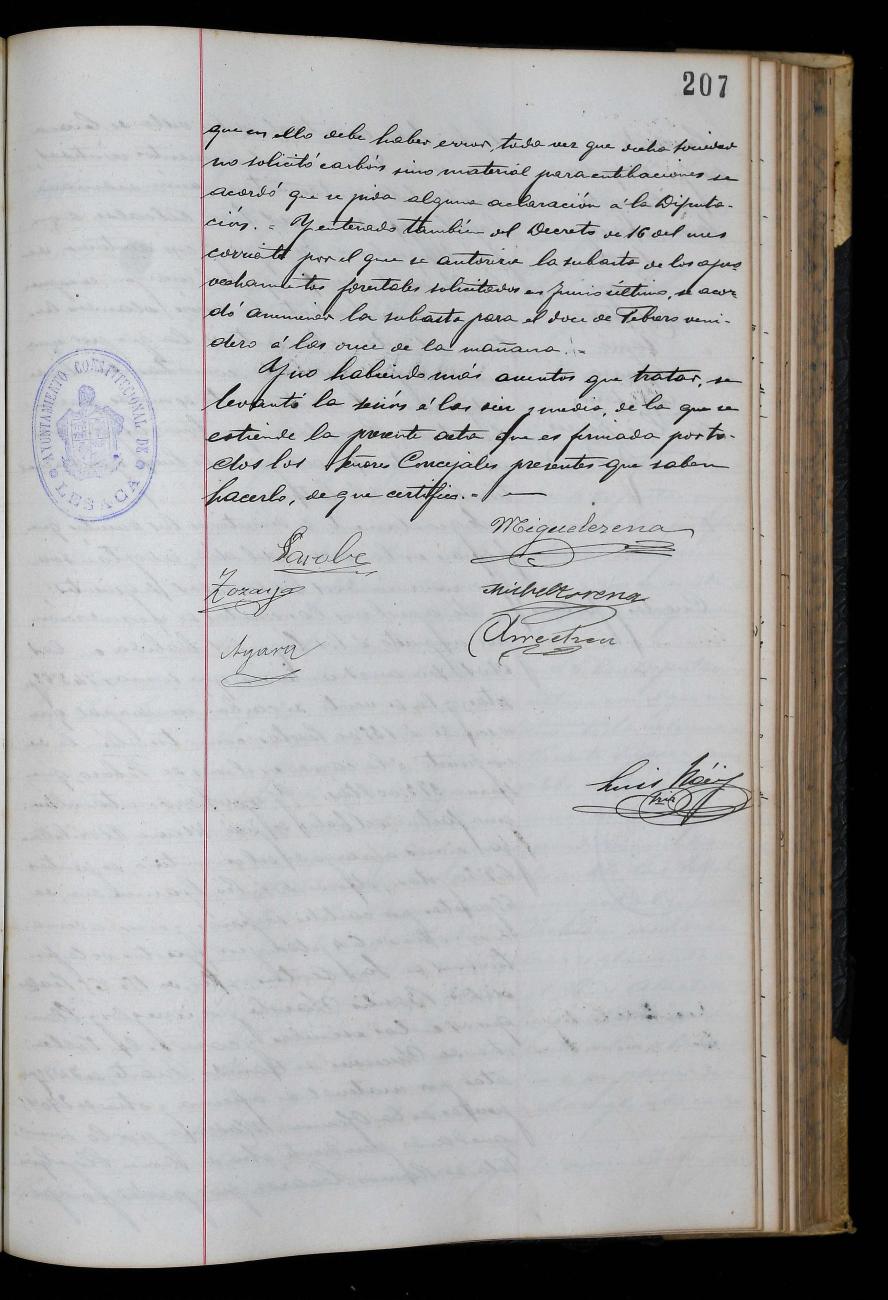 207
que en ello debe haber error, toda vez que dicha sociedad
no solicitó carbón sino material para entibaciones se
acordó que se pida alguna aclaración á la Diputa-
ción. = Y enterado también del Decreto de 16 del mes
corriente por el que se autoriza la subasta de los apro
vechamientos forestales solicitados en Junio último, se acor-
dó anunciar la subasta para el doce de Febrero veni-
dero á las once de la mañana. =
Y no habiendo más asuntos que tratar, se
levantó la sesión á las diez y media, de la que se
estiende la presente acta que es firmada por to-
dos los Señores Concejales presentes que saben
hacerlo, de que certifico. = —
AYUNTAMIENTO CONSTITUCIONAL DE
LESACA
Miguelerena
Sarobe
Zozaya
Michelxorena
Arrechea
Luis
Srio